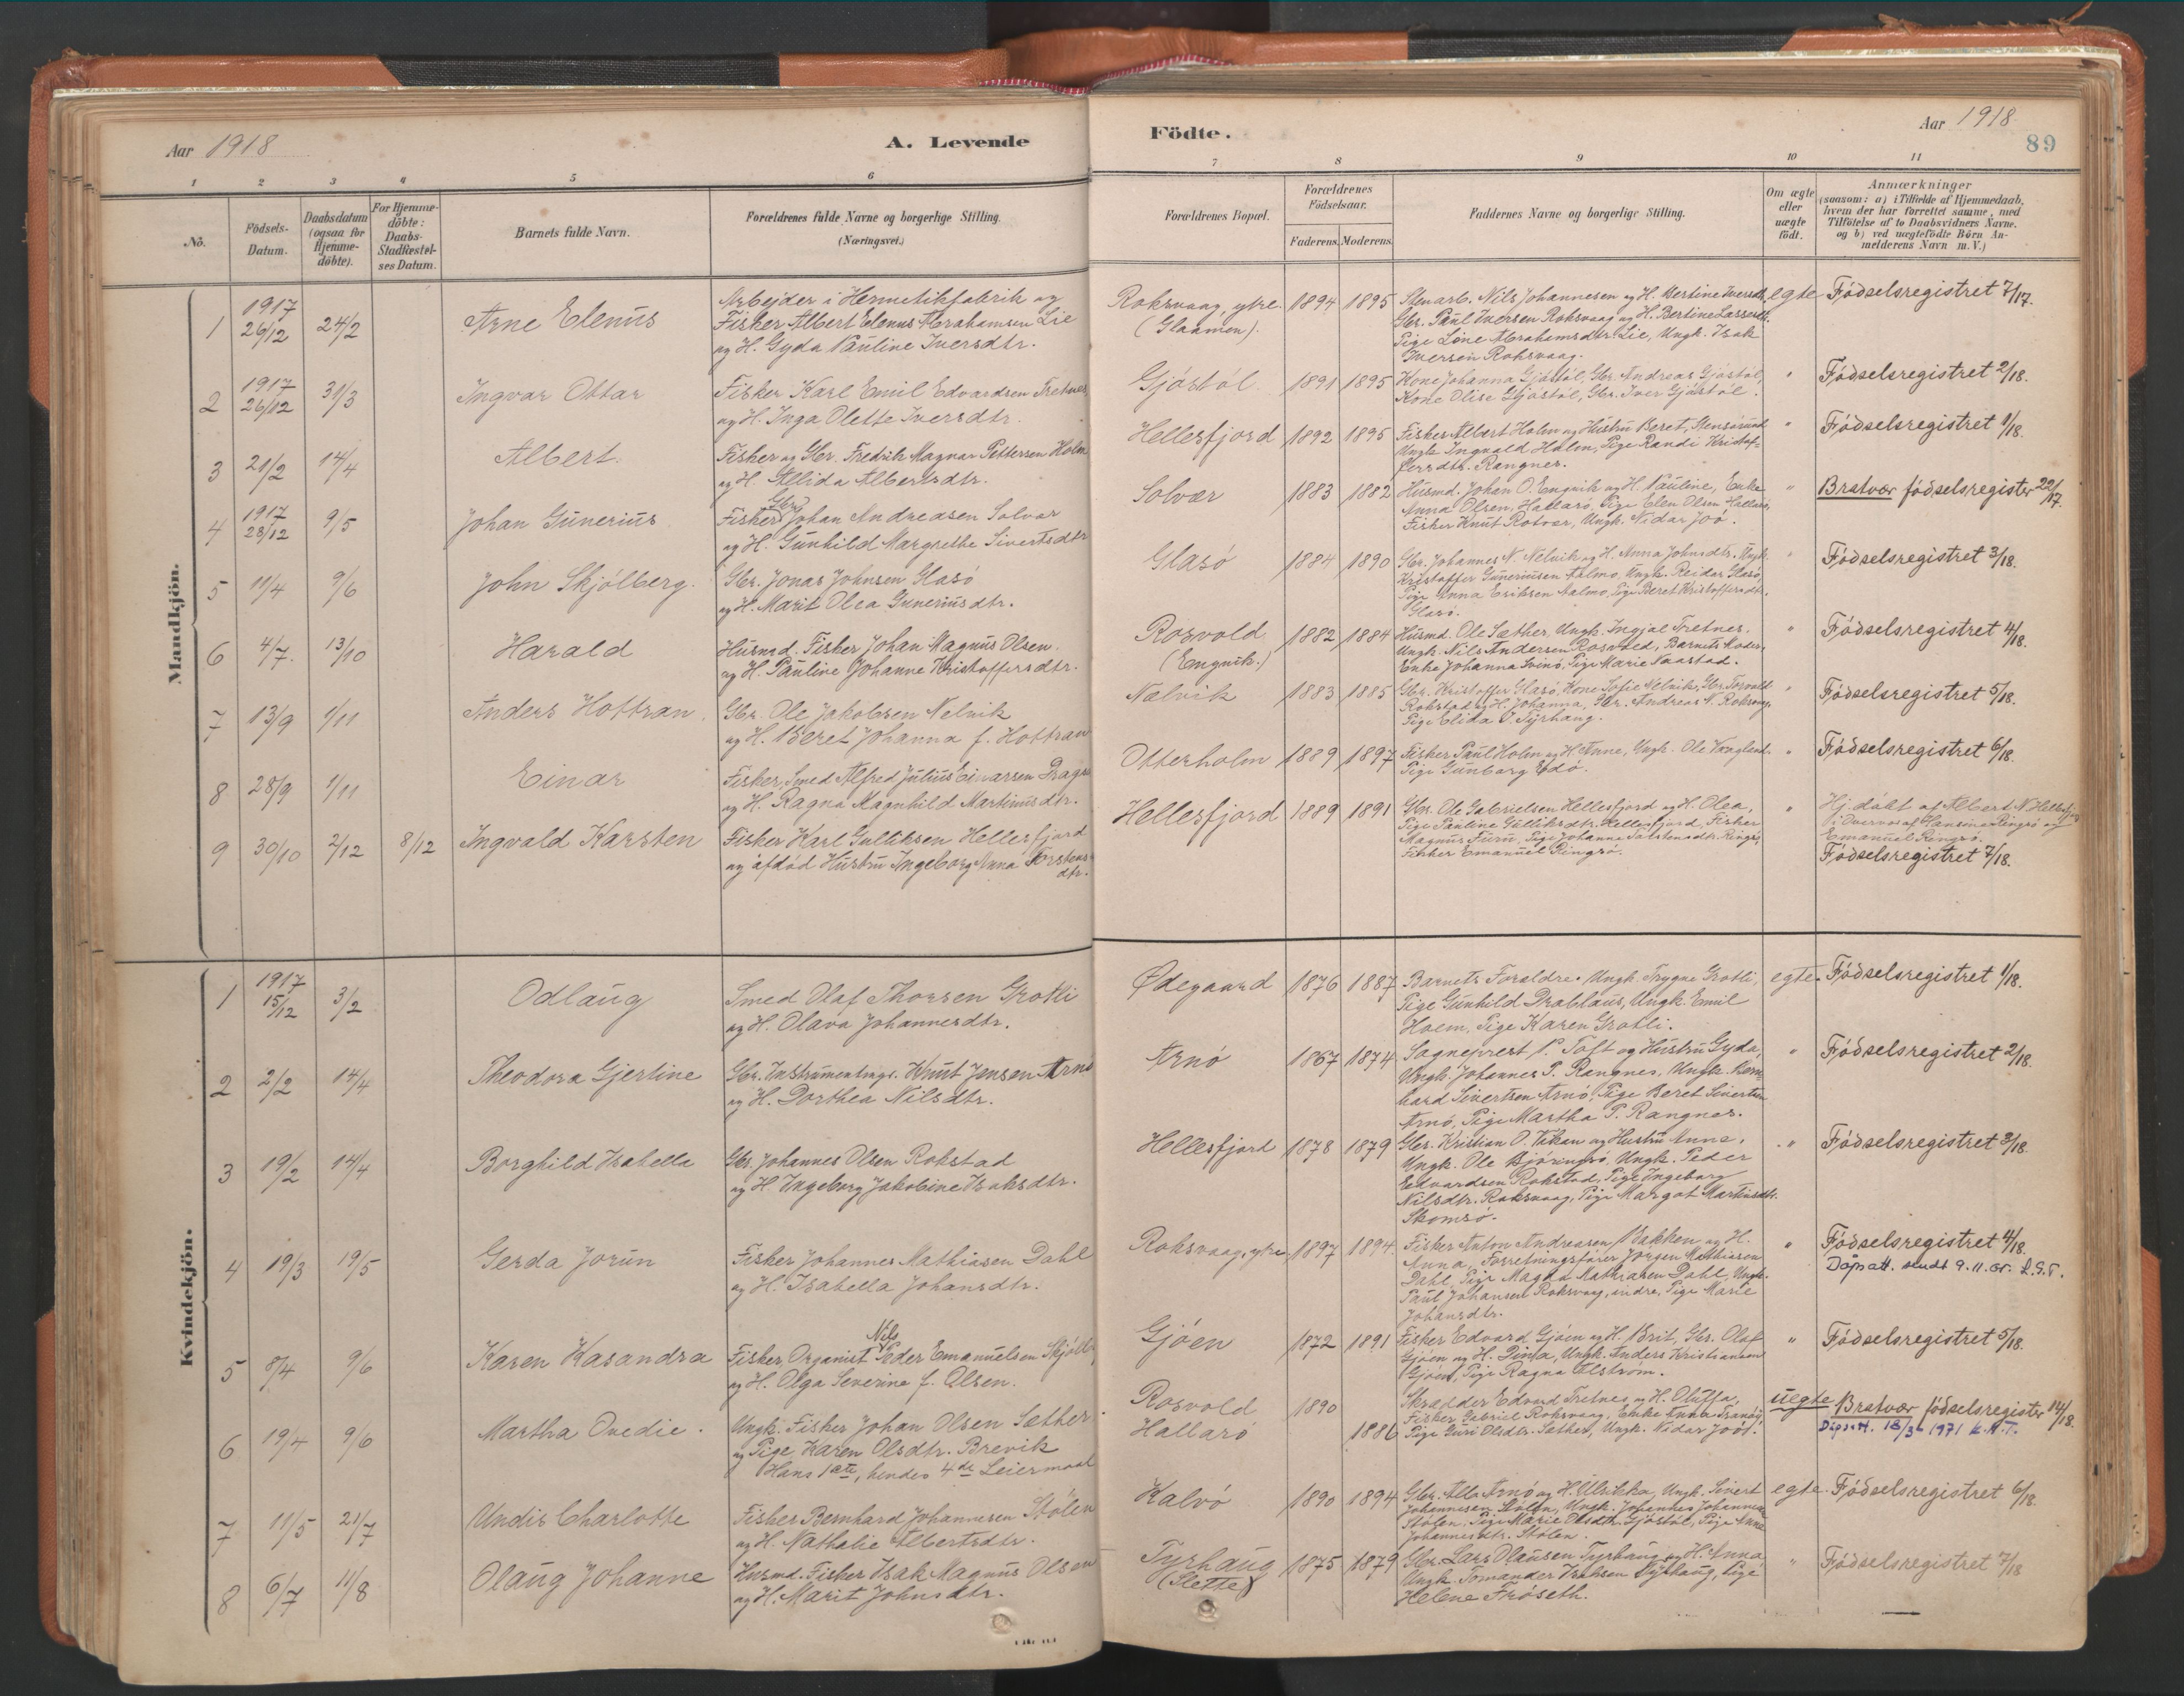 Aar 1918
A. Levende
Födte.
Aar 1918
89
1 2 3 4 5 6 7 8 9 10 11
Nö.
Födsels-
Datum.
Daabsdatum
(ogsaa for
Hjemme-
döbte).
For Hjemme-
döbte:
Daabs-
Stadfæstel-
ses Datum.
Barnets fulde Navn.
Forældrenes fulde Navne og borgerlige Stilling.
(Næringsvei.)
Forældrenes Bopæl.
Forældrenes
Födselsaar.
Faderens. Moderens.
Faddernes Navne og borgerlige Stilling.
Om ægte
eller
uægte
födt.
Anmærkninger
(saasom: a) i Tilfælde af Hjemmedaab,
hvem der har forrettet samme, med
Tilföielse af to Daabsvidners Navne.
og b) ved uægtefödte Börn An-
melderens Navn m. V.)
Mandkjön.
1 1917 26/12 24/2 Arne Elenus
Arbejder i Hermetikfabrik og
Fisker Albert Elenus Abrahamsen Lie
og H. Gyda Pauline Iversdtr.
Roksvaag, ytre.
(Glaamen).
1894 1895
Stenarb. Nils Johannesen og H. Bertine Iversdtr,
Gbr. Paul Iversen Roksvaag og H. Bertine Lassesdtr.
Pige Line Abrahamsdtr. Lie, Ungk. Isak
Iversen Roksvaag.
egte Födselsregistret 7/17.
2 1917 26/12 31/3 Ingvar Ottar
Fisker Karl Emil Edvardsen Tretnes,
og H. Inga Olette Iversdtr.
Gjöstöl 1891 1895
Kone Johanna Gjöstöl, Gbr. Andreas Gjöstöl,
Kone Olise Gjöstöl, Gbr. Iver Gjöstöl.
" Födselsregistret 2/18.
3 21/2 14/4 Albert.
Fisker og Gbr. Fredrik Magnar Pettersen Holm
og H. Allida Albertsdtr.
Hellesfjord 1892 1895
Fisker Albert Holm og Hustru Beret,
Ungk. Ingvald Holm, Pige Randi Kristof-
fersdtr. Rangnes.
" Födselsregistret 1/18.
4 1917 28/12 9/5 Johan Gunerius
Gbr.
Fisker Johan Andreasen Solvær
og H. Gunhild Margrethe Sivertsdtr
Solvær 1883 1882
Husmd. Johan O. Engvik og H. Pauline, Enke
Anna Olsen, Hallarö, Pige Elen Olsen Hallarö,
Fisker Knut Rotvær, Ungk. Nidar Joö.
" Bratvær födselsregister 22/17.
5 11/4 9/6 John Skjölberg.
Gbr. Jonas Johnsen Glasö
og H. Marit Olea Guneriusdtr.
Glasö 1884 1890
Gbr. Johannes N. Nelvik og H. Anna Johnsdtr. Ungk.
Kristoffer Guneriusen Aalmo, Ungk. Reidar Glasö,
Pige Anna Eriksen Aalmo, Pige Beret Kristoffersdtr.
Glasö.
" Födselsregistret 3/18.
6 4/7. 13/10 Harald
Husmd. Fisker Johan Magnus Olsen.
og H. Pauline Johanne Kristoffersdtr.
Rosvold
(Engvik.)
1882 1884
Husmd. Ole Sæther, Ungk. Ingjal Tretnes.
Ungk. Nils Andersen Rosvold, Barnets Moder.
Enke Johanna Svinö, Pige Marie Naastad.
" Födselsregistret 4/18.
7 13/9 1/11 Anders Hottran.
Gbr. Ole Jakobsen Nelvik
og H. Beret Johanna f. Hottran
Nælvik 1883 1885
Gbr. Kristoffer Glasö, Kone Sofie Nelvik, Gbr. Torvald
Rokstad og H. Johanna, Gbr. Andreas N. Roksvag,
Pige Elida O. Tyrhaug.
" Födselsregistret 5/18.
8 28/9 1/11 Einar
Fisker, Smed Alfred Julius Einarsen Dragö
og H. Ragna Magnhild Martinusdtr.
Otterholm 1889 1897
Fisker Paul Holm og H. Anne, Ungk. Ole
Pige Gunborg Edö.
" Födselsregistret 6/18.
9 30/10 2/12 8/12 Ingvald Karsten
Fisker Karl Gulliksen Hellesfjord
og afdöd Hustru Ingeborg Anna Torstens-
dtr.
Hellesfjord 1889 1891
Gbr. Ole Gabrielsen Hellesfjord og H. Olea,
Pige Pauline Gulliksdtr. Hellesfjord, Fisker
Magnus Furu, Pige Johanna Torstensdtr. Ringsö,
Fisker Emanuel Ringsö.
" Hj. döbt af Albert N. Hellesfjord
i Overvær af Hansine Ringsö og
Emanuel Ringsö.
Födselsregistret 7/18.
Kvindekjön.
1 1917 15/12 3/2 Odlaug
Smed Olaf Thorsen Grotli
og H. Olava Johannesdtr.
Ødegaard 1876 1887
Barnets Forældre. Ungk. Trygve Grotli,
Pige Gunhild Drablaus, Ungk. Emil
Holm, Pige Karen Grotli.
egte. Födselsregistret 1/18.
2 2/2 14/4 Theodora Gjertine
Gbr. Instrumentmgr. Knut Jensen Arnö
og H. Dorthea Nilsdtr.
Arnö 1867 1874
Sogneprest P. Toft og Hustru Gyda,
Ungk. Johannes P. Rangnes, Ungk. Bern-
hard Sivertsen Arnö, Pige Beret Sivertsen
Arnö, Pige Martha P. Rangnes.
" Födselsregistret 2/18.
3 19/2 14/4 Borghild Isabella
Gbr. Johannes Olsen Rokstad
og H. Ingeborg Jakobine Isaksdtr.
Hellesfjord 1878 1879
Gbr. Kristian O. Viken og Hustru Anne,
Ungk. Ole Björingsö, Ungk. Peder
Edvardsen Rokstad, Pige Ingeborg
Nilsdtr. Roksvaag, Pige Margot Martinsdtr.
Skomsö.
" Födselsregistret 3/18.
4 19/3 19/5 Gerda Jorun
Fisker Johannes Mathiasen Dahl
og H. Isabella Johansdtr.
Roksvaag, ytre. 1897 1894.
Fisker Anton Andreasen Bakken og H.
Anna, Forretningsfører Jörgen Mathiasen
Dahl, Pige Magda Mathiasen Dahl, Ungk.
Paul Johansen Roksvaag, indre, Pige Marie
Johansdtr.
" Födselsregistret 4/18.
Dåpsatt. sendt 9.11.65. L.S.T.
5 8/4 9/6 Karen Kasandra
Nils
Fisker, Organist Peder Emanuelsen Skjölb
og H. Olga Severine f. Olsen.
Gjöen 1872 1891
Fisker Edvard Gjöen og H. Brit, Gbr. Olaf
Gjöen og H. Dina, Ungk. Anders Kristiansen
Gjöen, Pige Ragna Alström.
" Födselsregistret 5/18.
6 19/4 9/6 Martha Ovedie.
Ungk. Fisker Johan Olsen Sæther.
og Pige Karen Olsdtr. Brevik
Hans 1ste, hendes 4de Leiermaal
Rosvold 1890
Hallarö 1886
Skrædder Edvard Tretnes og H. Oluffa,
Fisker Gabriel Roksvaag, Enke Anna Tranöy,
Pige Guri Olsdtr. Sæther, Ungk. Nidar Joöy.
uegte Bratvær födselsregister 14/18.
Dåpsatt. 18/3 1971 K.N.T.
7 11/5 21/7 Undis Charlotte
Fisker Bernhard Johannesen Stölen
og H. Nathalie Albertsdtr.
Kalvö 1890 1894
Gbr. Atle Arnö og H. Ulrikka, Ungk. Sivert
Johannesen Stölen, Ungk. Johannes Johannesen
Stölen. Pige Marie Olsdtr. Gjöstöl, Pige Anna
Johannesdtr. Stölen.
egte. Födselsregistret 6/18.
8 6/7 11/8 Olaug Johanne
Husmd. Fisker Isak Magnus Olsen
og H. Marit Johnsdtr.
Tyrhaug
(Slette)
1875 1879
Gbr. Lars Olausen Tyrhaug og H. Anna,
Ungk. Tomander Isaksen Tyrhaug, Pige
Helene Fröseth.
" Födselsregistret 7/18